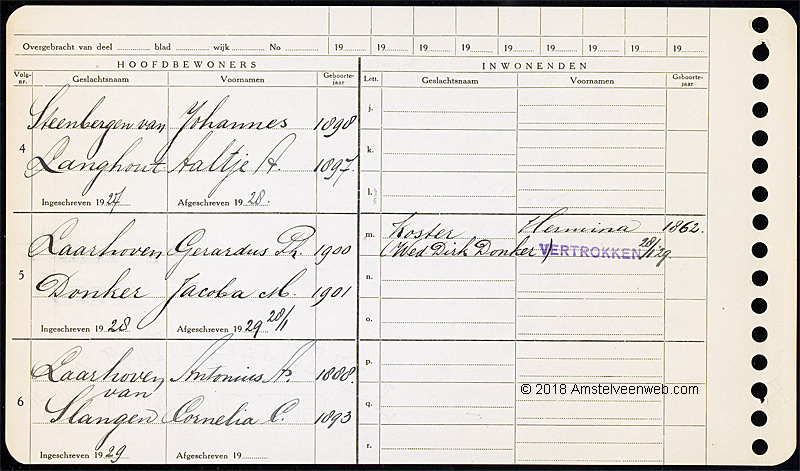 Overgebracht van deel ............ blad ........ wijk ........ No ............ 19.... 19.... 19.... 19.... 19.... 19.... 19.... 19....
HOOFDBEWONERS INWONENDEN
Volg-nr. Geslachtsnaam Voornamen Geboorte-jaar Lett. Geslachtsnaam Voornamen Geboorte-jaar
j.
4 Steenbergen van Johannes 1898
k.
Langhout Aaltje A. 1897.
l.
Ingeschreven 1927 Afgeschreven 1928.
m. Koster Hermina 1862.
Laarhoven Gerardus Ph. 1900 (Wed Dirk Donker) VERTROKKEN 28/1 29
5 n.
Donker Jacoba M. 1901
o.
Ingeschreven 1928 Afgeschreven 1929 28/1
p.
Laarhoven Antonius A. 1888.
van
© 2018 Amstelveenweb.com
6 Slangen Cornelia C. 1893 q.
r.
Ingeschreven 1929 Afgeschreven 19